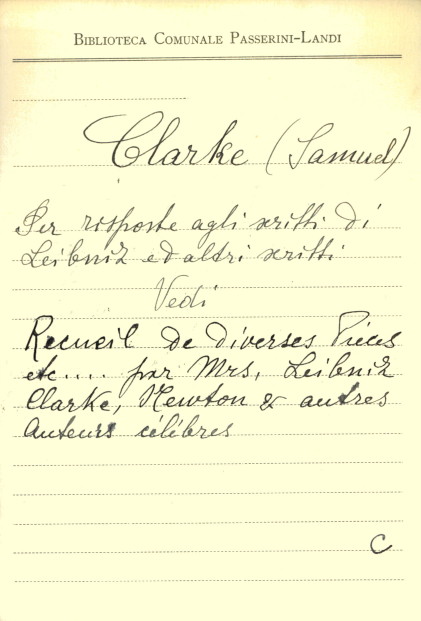 BIBLIOTECA COMUNALE PASSERINI-LANDI
Clarke (Samuel)
Per risposte agli scritti di
Leibniz ed altri scritti
Vedi
Recueil de diverses Pièces
etc.... par Mrs. Leibniz
Clarke, Newton & autres
auteurs célèbres
C